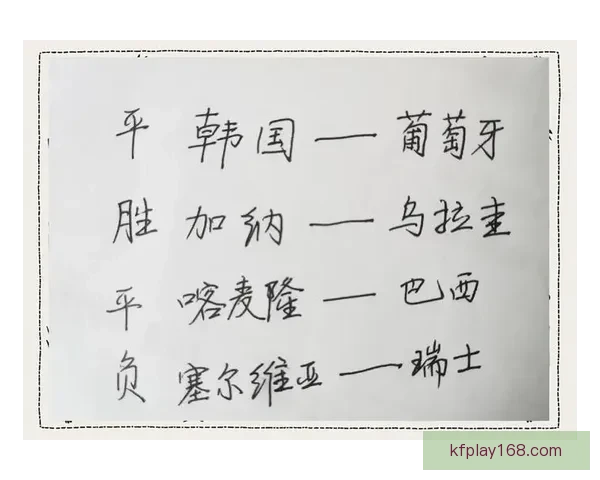 平 韩国 — 葡萄牙
胜 加纳 — 乌拉圭
平 喀麦隆 — 巴西
负 塞尔维亚 — 瑞士
kfplay168.com